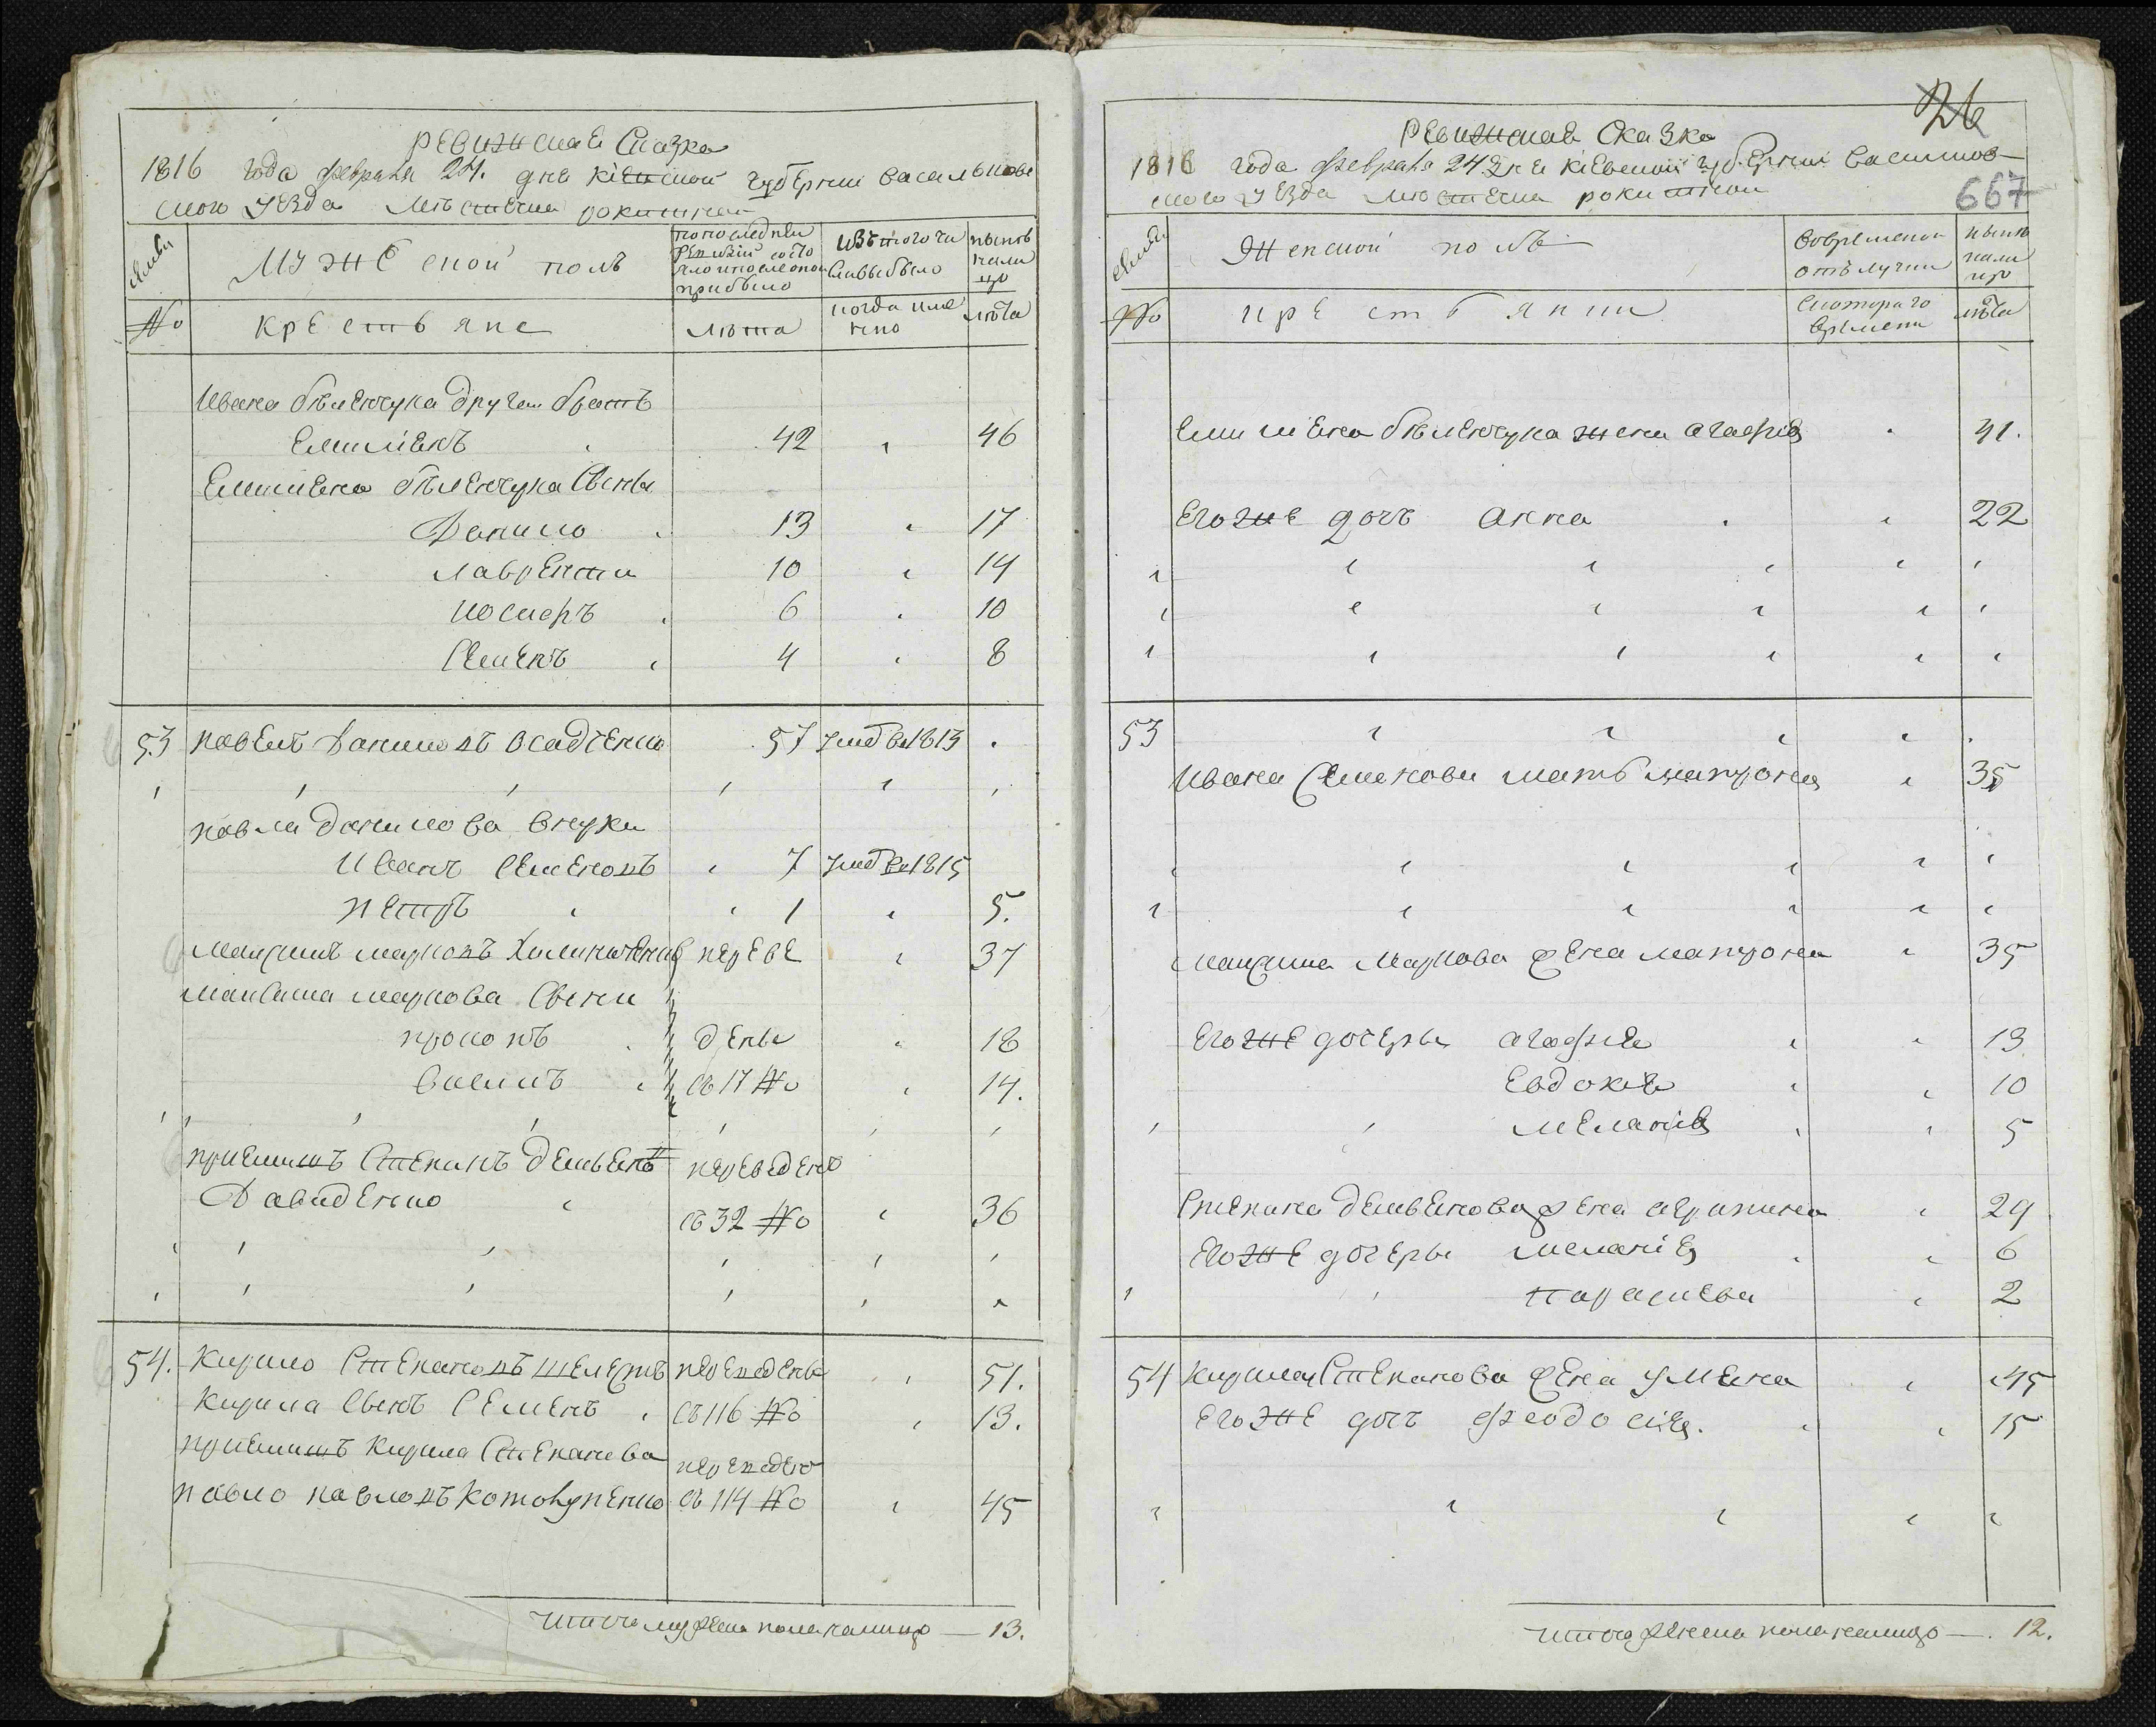 ревижская Сказка
1816 года февраля 24. дня Кіевской губерніи васильков
ского уезда местечка рокитной
семьи
мужеской полъ
по последней ревизіи состояло и после оной прибыло
изъ того числа выбыло
ныне на лицо
№
крестьяне
лета
когда именно
лета
Ивана беленчука другой братъ
Емиліянъ 42 46
Емиліяна беленчука Сыны
Данило 13 17
лаврентій 10 14
иосифъ 6 10
Семенъ 4 8
53 павелъ Даниловъ Осадченко 57 умеръ 1813
павла данилова внуки
Иванъ Семеновъ 7 умеръ 1815
петръ 1 5.
максимъ марковъ переве 37
максима маркова Сыны
прокопъ дены 18
василъ съ 17 № 14.
приемышъ Степанъ демьяновъ переведенъ
Давиденко съ 32 № 36
54. Кирило Степановъ шелестъ переведены 51.
Кирила Сынъ Семенъ съ 116 № 13.
приемышъ Кирила Степанова переведенъ
павло павловъ съ 114 № 45
итого мужеска пола налицо — 13.
26
667
ревижская Сказка
1816 года февраля 24 дня Кіевской губерніи васильков—
ского уезда местечка рокитной
семьи
Женской полъ
во временной отлучки
ныне на лицо
№
крестьянки
с котораго времени
лета
Емиліяна беленчука жена агафия 41.
Егоже дочь анна 22
53
Ивана Семенова мать матрона 35
максима Маркова жена матрона 35
Егоже дочеры агафия 13
Евдокія 10
меланія 5
Степана демьянова жена агрипина 29
Егоже дочеры меланія 6
параскева 2
54 Кирила Степанова жена улияна 45
Егоже дочь феодосія. 15
итого женска пола налицо — 12.